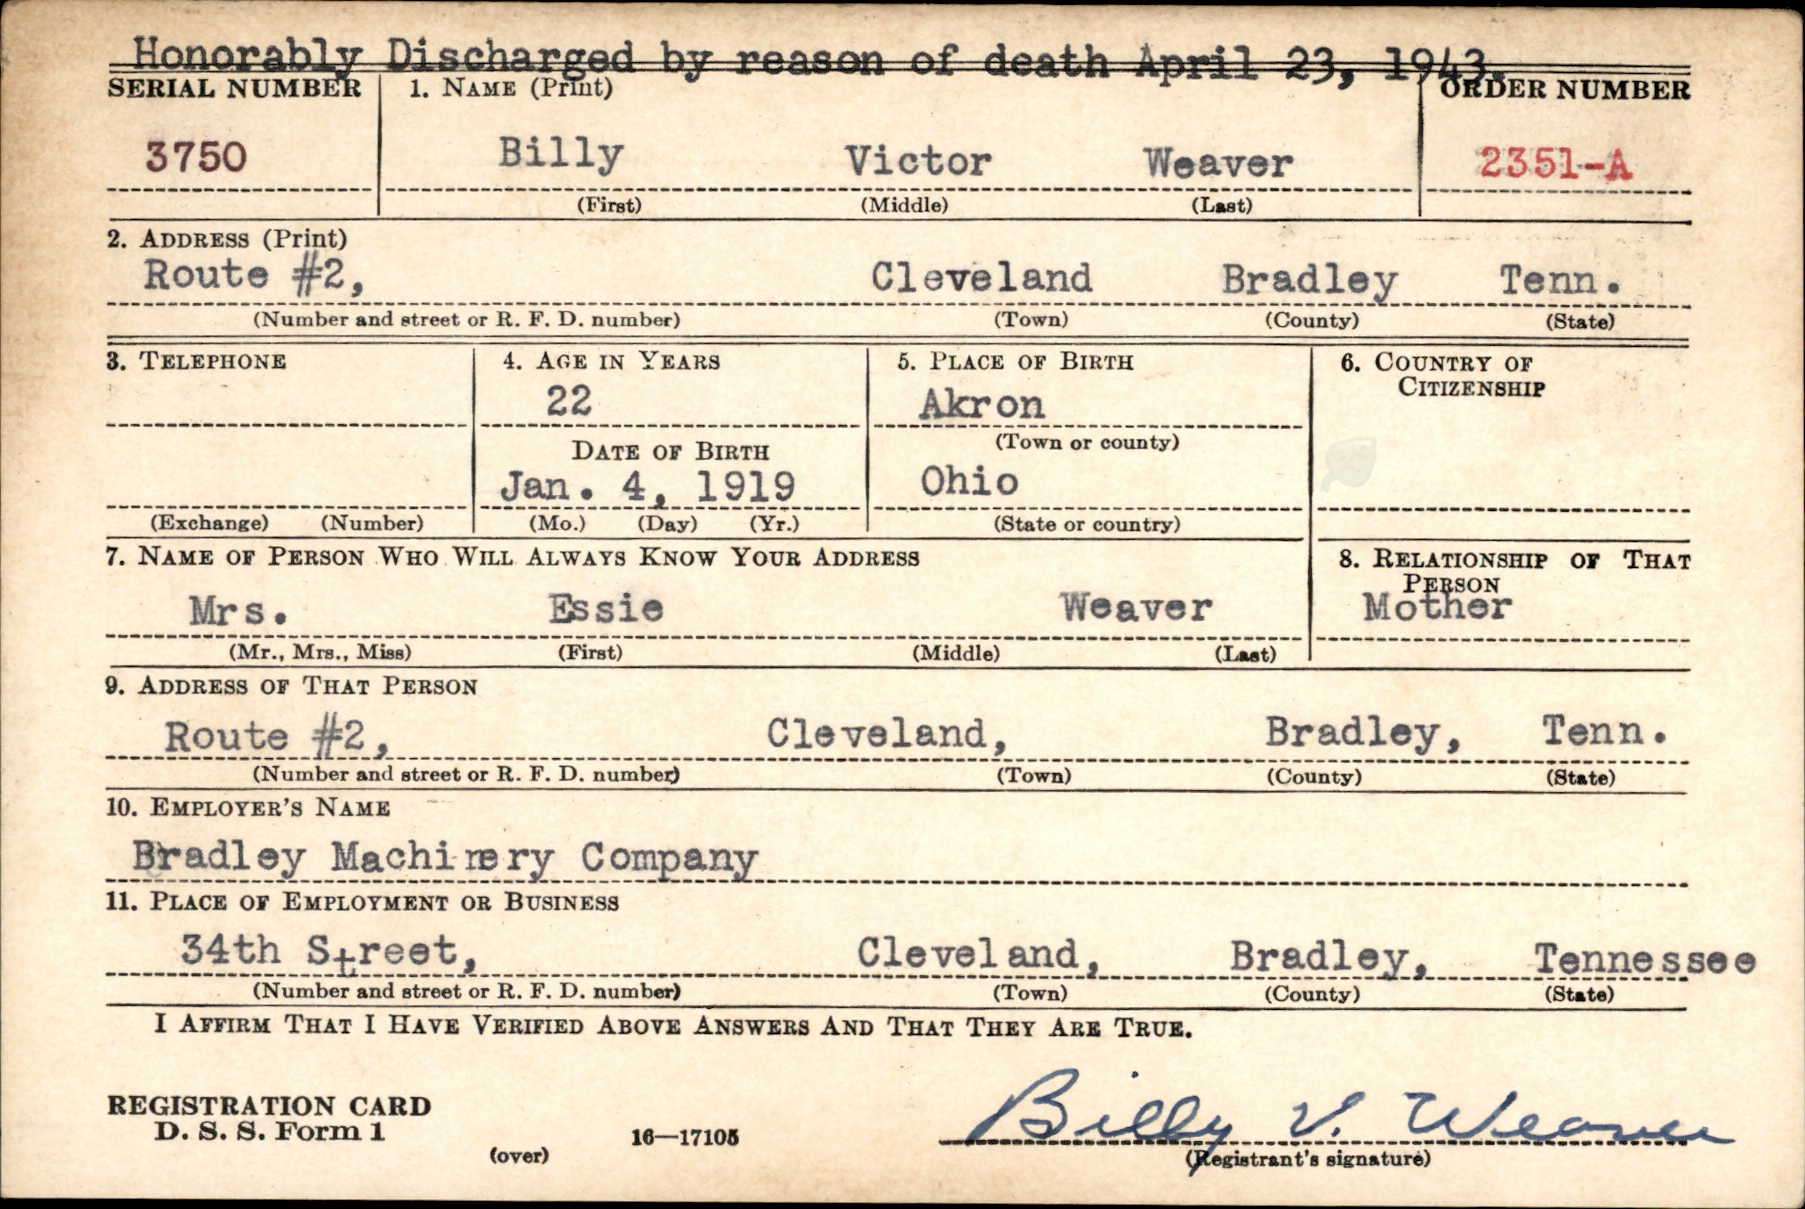 Honorably Discharged by reason of death April 23, 1943.
SERIAL NUMBER 1. NAME (Print) ORDER NUMBER
3750 Billy Victor Weaver 2351-A
(First) (Middle) (Last)
2. ADDRESS (Print)
Route #2, Cleveland Bradley Tenn.
(Number and street or R. F. D. number) (Town) (County) (State)
3. TELEPHONE 4. AGE IN YEARS 5. PLACE OF BIRTH 6. COUNTRY OF
CITIZENSHIP
22 Akron
DATE OF BIRTH (Town or county)
Jan. 4, 1919 Ohio
(Exchange) (Number) (Mo.) (Day) (Yr.) (State or country)
7. NAME OF PERSON WHO WILL ALWAYS KNOW YOUR ADDRESS 8. RELATIONSHIP OF THAT
PERSON
Mrs. Essie Weaver Mother
(Mr., Mrs., Miss) (First) (Middle) (Last)
9. ADDRESS OF THAT PERSON
Route #2, Cleveland, Bradley, Tenn.
(Number and street or R. F. D. number) (Town) (County) (State)
10. EMPLOYER'S NAME
Bradley Machinery Company
11. PLACE OF EMPLOYMENT OR BUSINESS
34th Street, Cleveland, Bradley, Tennessee
(Number and street or R. F. D. number) (Town) (County) (State)
I AFFIRM THAT I HAVE VERIFIED ABOVE ANSWERS AND THAT THEY ARE TRUE.
REGISTRATION CARD
D. S. S. Form 1
(over) 16—17105 Billy V. Weaver
(Registrant's signature)